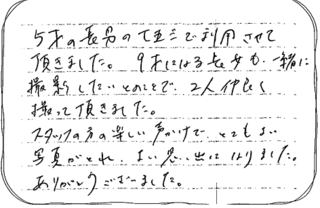 5才の長男の七五三で利用させて
頂きました。9才になる長女も一緒に
撮影したいとのことで、2人仲良く
撮って頂きました。
スタッフの方の楽しい声かけで、とてもよい
写真がとれ、よい思い出になりました。
ありがとうございました。